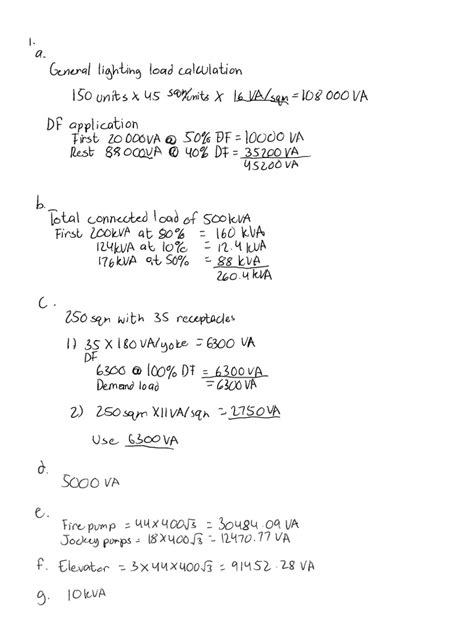 1.
a.
General lighting load calculation
150 units x 45 sqm/units x 16 VA/sqm = 108 000 VA
DF application
First 20 000VA @ 50% DF = 10000 VA
Rest 88 000VA @ 40% DF = 35200 VA
45200 VA
b.
Total connected load of 500kVA
First 200kVA at 80% = 160 kVA
124kVA at 10% = 12.4 kVA
176kVA at 50% = 88 kVA
260.4 kVA
C.
250 sqm with 35 receptacles
1) 35 X 180 VA/yoke = 6300 VA
DF
6300 @ 100% DF = 6300 VA
Demand load = 6300 VA
2) 250 sqm X 11 VA/sqm = 2750 VA
Use 6300 VA
d.
5000 VA
e.
Fire pump = 44 x 400√3 = 30484.09 VA
Jockey pumps = 18 x 400√3 = 12470.77 VA
f. Elevator = 3 x 44 x 400√3 = 91452.28 VA
g. 10kVA